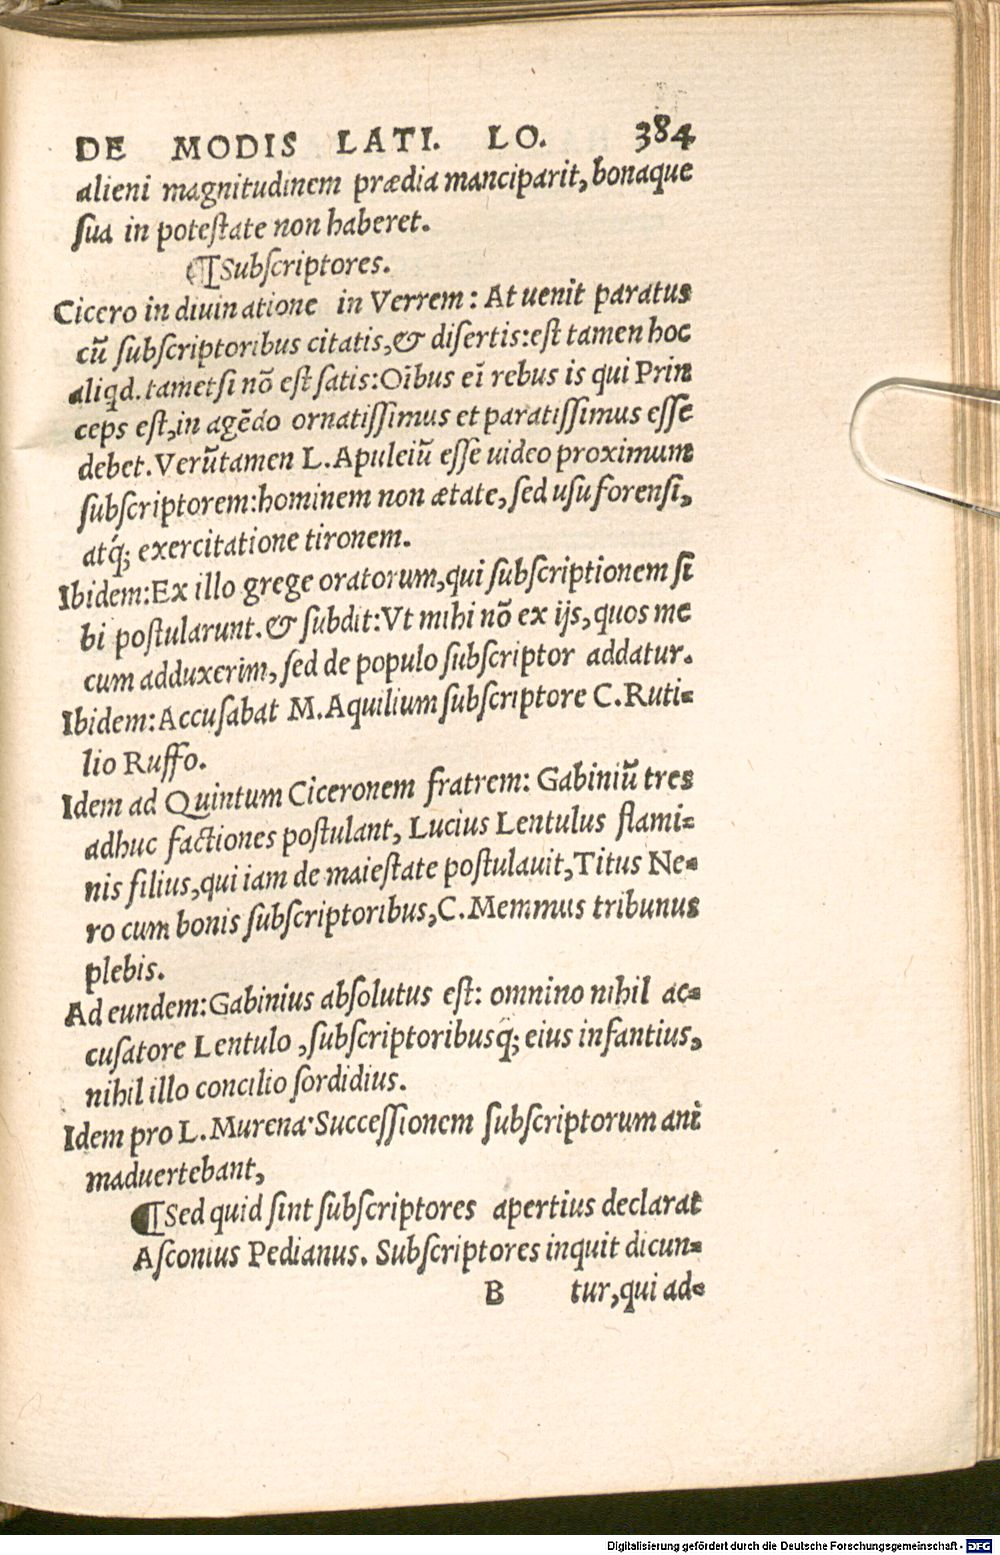 DE MODIS LATI. LO. 384
alieni magnitudinem prædia manciparit, bonaque
ſua in poteſtate non haberet.
¶Subſcriptores.
Cicero in diuinatione in Verrem: At uenit paratus
cū ſubſcriptoribus citatis,& diſertis:eſt tamen hoc
aliqd. tametſi nō eſt ſatis:Oībus eī rebus is qui Prin
ceps eſt,in agēdo ornatiſſimus et paratiſſimus eſſe
debet.Verūtamen L.Apuleiū eſſe uideo proximum
ſubſcriptorem:hominem non ætate, ſed uſu forenſi,
atq́; exercitatione tironem.
Ibidem:Ex illo grege oratorum,qui ſubſcriptionem ſi
bi poſtularunt.& ſubdit:Vt mihi nō ex ijs,quos me
cum adduxerim, ſed de populo ſubſcriptor addatur.
Ibidem:Accuſabat M.Aquilium ſubſcriptore C.Ruti-
lio Ruffo.
Idem ad Quintum Ciceronem fratrem: Gabiniū tres
adhuc factiones poſtulant, Lucius Lentulus flami-
nis filius,qui iam de maieſtate poſtulauit,Titus Ne-
ro cum bonis ſubſcriptoribus,C.Memmus tribunus
plebis.
Ad eundem:Gabinius abſolutus eſt: omnino nihil ac-
cuſatore Lentulo ,ſubſcriptoribusq́; eius infantius,
nihil illo concilio ſordidius.
Idem pro L.Murena·Succeſſionem ſubſcriptorum ani
maduertebant,
¶Sed quid ſint ſubſcriptores apertius declarat
Aſconius Pedianus. Subſcriptores inquit dicun-
B tur,qui ad-
Digitalisierung gefördert durch die Deutsche Forschungsgemeinschaft - DFG